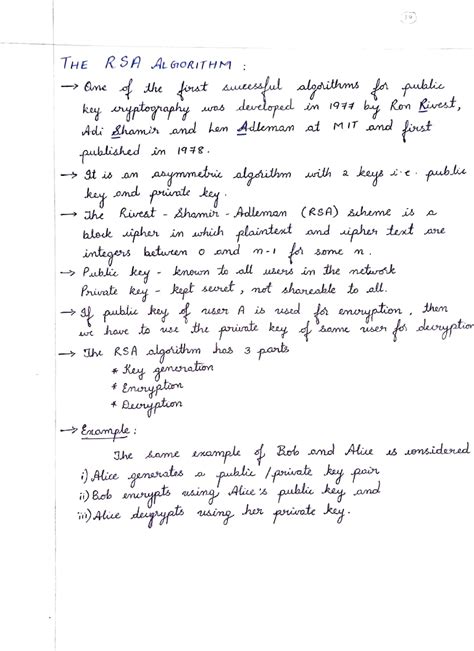 THE RSA ALGORITHM :
→ One of the first successful algorithms for public
key cryptography was developed in 1977 by Ron Rivest,
Adi Shamir and Len Adleman at MIT and first
published in 1978.
→ It is an asymmetric algorithm with 2 keys i.e. public
key and private key.
→ The Rivest - Shamir - Adleman (RSA) scheme is a
block cipher in which plaintext and cipher text are
integers between 0 and n-1 for some n.
→ Public key - known to all users in the network
Private key - kept secret, not shareable to all.
→ If public key of user A is used for encryption, then
we have to use the private key of same user for decryption
→ The RSA algorithm has 3 parts
* Key generation
* Encryption
* Decryption
→ Example :
The same example of Bob and Alice is considered
i) Alice generates a public / private key pair
ii) Bob encrypts using Alice's public key and
iii) Alice decrypts using her private key.